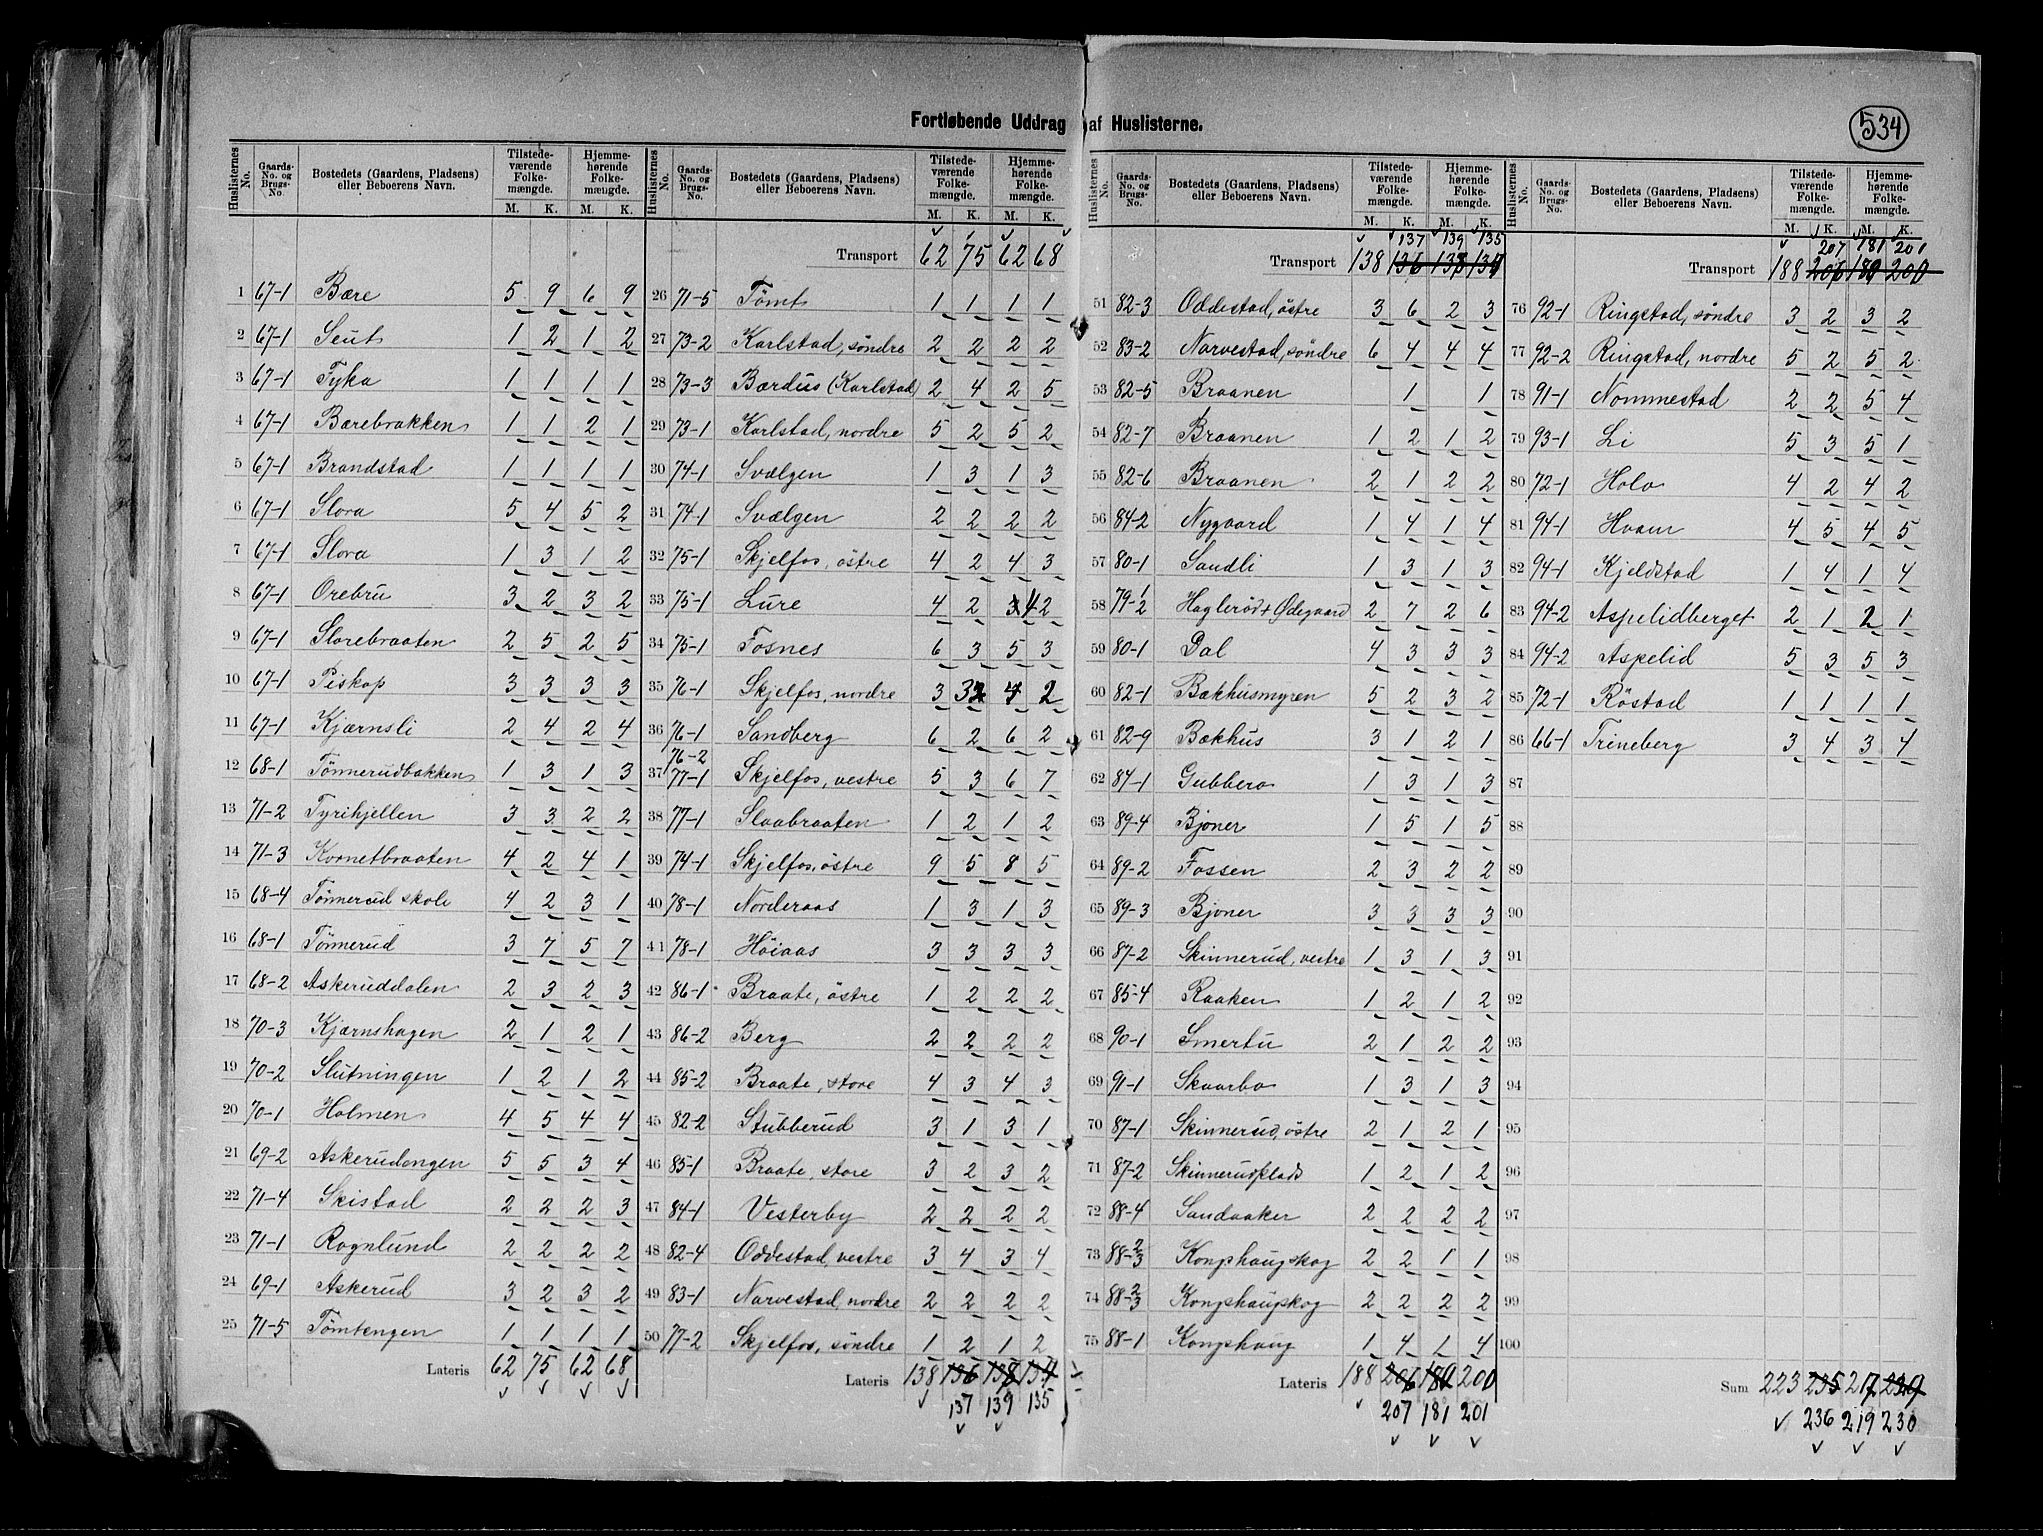 Fortløbende Uddrag af Huslisterne.
534
Huslisternes No. | Gaards-No. og Brugs-No. | Bostedets (Gaardens, Pladsens) eller Beboerens Navn. | Tilstede-værende Folke-mængde. M. K. | Hjemme-hørende Folke-mængde. M. K.
1 67-1 Bære 5 9 6 9
2 67-1 Seut 1 2 1 2
3 67-1 Tyka 1 1 1 1
4 67-1 Bærebrakken 1 1 2 1
5 67-1 Brandstad 1 1 1 1
6 67-1 Slora 5 4 5 2
7 67-1 Slora 1 3 1 2
8 67-1 Orebru 3 2 3 2
9 67-1 Slorebraaten 2 5 2 5
10 67-1 Piskop 3 3 3 3
11 67-1 Kjærnsli 2 4 2 4
12 68-1 Tönnerudbakken 1 3 1 3
13 71-2 Tyrihjellen 3 3 2 2
14 71-3 Kornetbraaten 4 2 4 1
15 68-4 Tönnerud skole 4 2 3 1
16 68-1 Tönnerud 3 7 5 7
17 68-2 Askeruddalen 2 3 2 3
18 70-3 Kjærnshagen 2 1 2 1
19 70-2 Slutningen 1 2 1 2
20 70-1 Holmen 4 5 4 4
21 69-2 Askerudengen 5 5 3 4
22 71-4 Skistad 2 2 2 3
23 71-1 Rognlund 2 2 2 2
24 69-1 Askerud 3 2 3 2
25 71-5 Tömtengen 1 1 1 1
Lateris 62 75 62 68
Huslisternes No. | Gaards-No. og Brugs-No. | Bostedets (Gaardens, Pladsens) eller Beboerens Navn. | Tilstede-værende Folke-mængde. M. K. | Hjemme-hørende Folke-mængde. M. K.
Transport 62 75 62 68
26 71-5 Tömt 1 1 1 1
27 73-2 Karlstad, söndre 2 2 2 2
28 73-3 Bærdus (Karlstad) 2 4 2 5
29 73-1 Karlstad, nordre 5 2 5 2
30 74-1 Svælgen 1 3 1 3
31 74-1 Svælgen 2 2 2 2
32 75-1 Skjelfos, östre 4 2 4 3
33 75-1 Lure 4 2 4 2
34 75-1 Fosnes 6 3 5 3
35 76-1 Skjelfos, nordre 3 3 4 2
36 76-1 Sandberg 6 2 6 2
37 76-2 77-1 Skjelfos, vestre 5 3 6 7
38 77-1 Slaabraaten 1 2 1 2
39 74-1 Skjelfos, östre 9 5 8 5
40 78-1 Norderaas 1 3 1 3
41 78-1 Höiaas 3 3 3 3
42 86-1 Braate, östre 1 2 2 2
43 86-2 Berg 2 2 2 2
44 85-2 Braate, store 4 3 4 3
45 82-2 Stubberud 3 1 3 1
46 85-1 Braate, store 3 2 3 2
47 84-1 Vesterby 2 2 2 2
48 82-4 Oddestad, vestre 3 4 3 4
49 83-1 Narvestad, nordre 2 2 2 2
50 77-2 Skjelfos, söndre 1 2 1 2
Lateris 138 136 138 134
137 139 135
Huslisternes No. | Gaards-No. og Brugs-No. | Bostedets (Gaardens, Pladsens) eller Beboerens Navn. | Tilstede-værende Folke-mængde. M. K. | Hjemme-hørende Folke-mængde. M. K.
137 139 135
Transport 138 136 138 134
51 82-3 Oddestad, östre 3 6 2 3
52 83-2 Narvestad, söndre 6 4 4 4
53 82-5 Braanen 1 1
54 82-7 Braanen 1 2 1 2
55 82-6 Braanen 2 1 2 2
56 84-2 Nygaard 1 4 1 4
57 80-1 Sandli 1 3 1 3
58 79-1/2 Haglerød + Ødegaard 2 7 2 6
59 80-1 Dal 4 3 3 3
60 82-1 Bækhusmyren 5 2 3 2
61 82-9 Bækhus 3 1 2 1
62 84-1 Gubbero 1 3 1 3
63 89-4 Bjoner 1 5 1 5
64 89-2 Fossen 2 3 2 2
65 89-3 Bjoner 3 3 3 3
66 87-2 Skinnerud, vestre 1 3 1 3
67 85-4 Raaken 1 2 1 2
68 90-1 Smertu 2 1 2 2
69 91-1 Skaarbo 1 3 1 3
70 87-1 Skinnerud, östre 2 1 2 1
71 87-2 Skinnerudplads 1 2 1 2
72 88-4 Sandaaker 2 2 2 2
73 88-2/3 Kongshaugskog 2 2 1 1
74 88-2/3 Kongshaugskog 2 2 2 2
75 88-1 Kongshaug 1 4 1 4
Lateris 188 206 180 200
207 181 201
Huslisternes No. | Gaards-No. og Brugs-No. | Bostedets (Gaardens, Pladsens) eller Beboerens Navn. | Tilstede-værende Folke-mængde. M. K. | Hjemme-hørende Folke-mængde. M. K.
207 181 201
Transport 188 206 180 200
76 92-1 Ringstad, söndre 3 2 3 2
77 92-2 Ringstad, nordre 5 2 5 2
78 91-1 Nommestad 2 2 5 4
79 93-1 Li 5 3 5 1
80 72-1 Holo 4 2 4 2
81 94-1 Hvam 4 5 4 5
82 94-1 Kjeldstad 1 4 1 4
83 94-2 Aspelidberget 2 1 2 1
84 94-2 Aspelid 5 3 5 3
85 72-1 Röstad 1 1 1 1
86 66-1 Trineberg 3 4 3 4
87
88
89
90
91
92
93
94
95
96
97
98
99
100
Sum 223 235 217 229
236 219 230